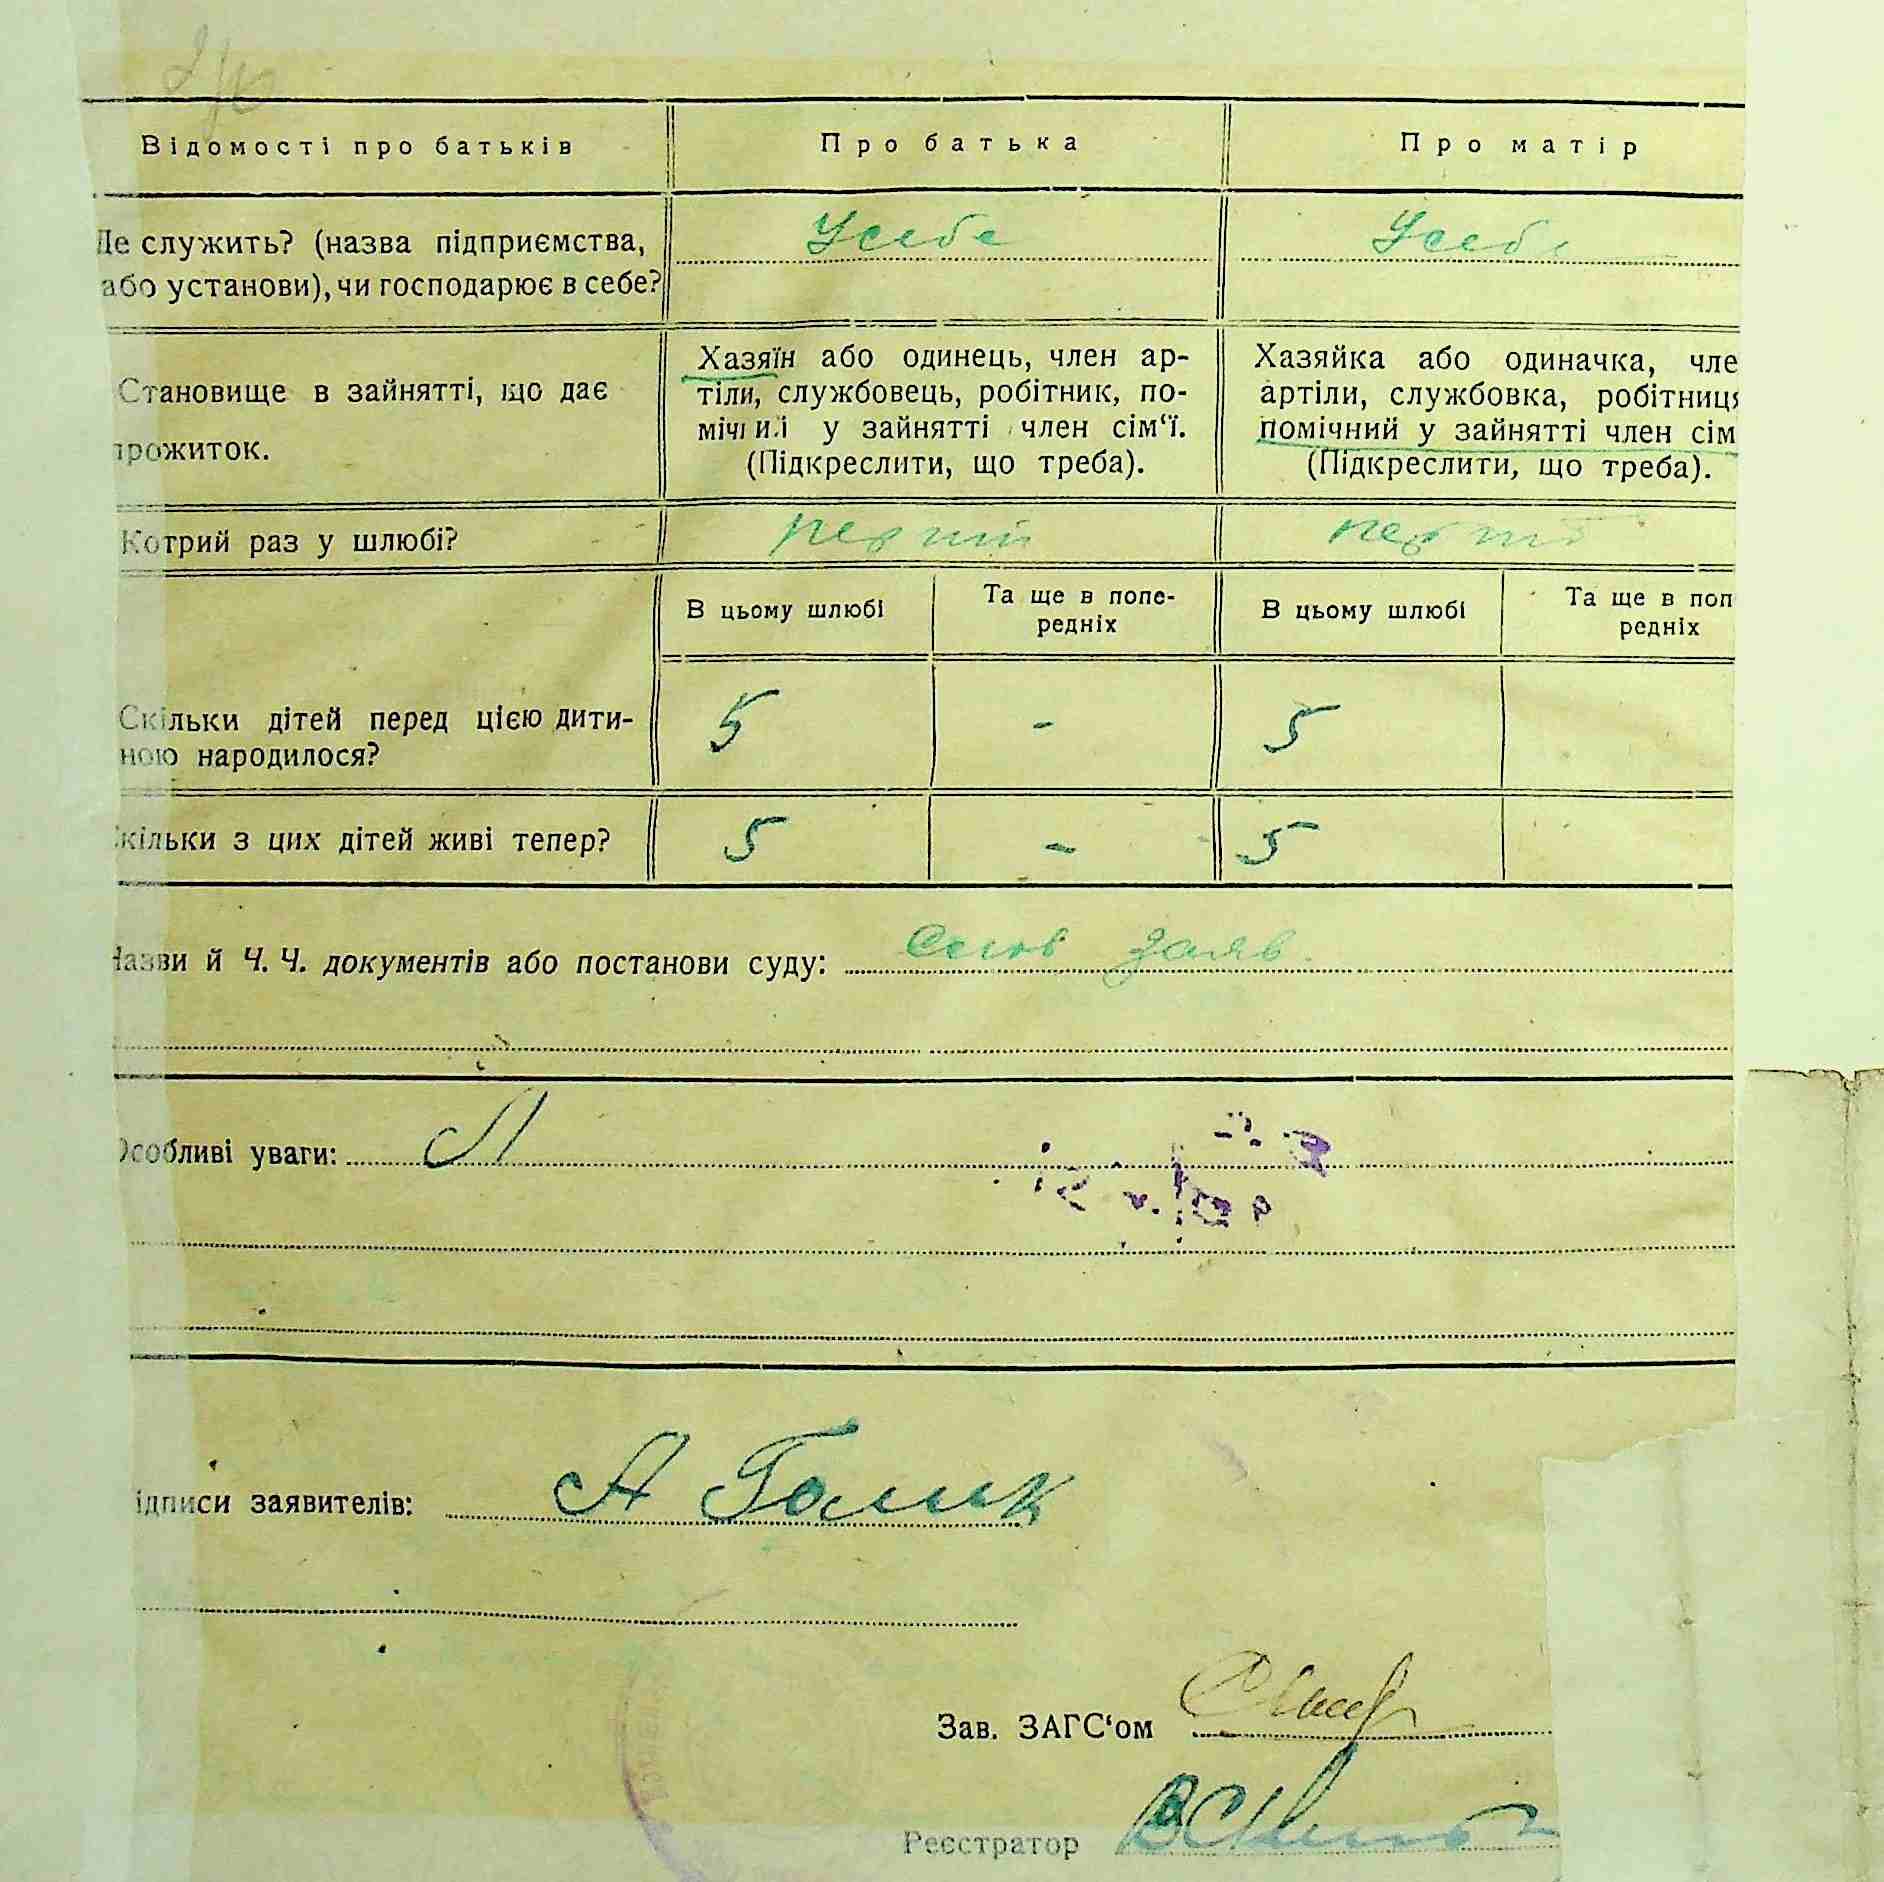 Відомості про батьків
Про батька
Про матір
Де служить? (назва підприємства,
або установи), чи господарює в себе?
Усебе
Усебе
Становище в зайнятті, що дає
прожиток.
Хазяїн або одинець, член ар-
тіли, службовець, робітник, по-
у зайнятті член сім‘ї.
(Підкреслити, що треба).
Хазяйка або одиначка, чле
артіли, службовка, робітниця
помічний у зайнятті член сім
(Підкреслити, що треба).
Котрий раз у шлюбі?
В цьому шлюбі
Та ще в попе-
редніх
В цьому шлюбі
Та ще в поп
редніх
Скільки дітей перед цією дити-
ною народилося?
5
-
5
Скільки з цих дітей живі тепер?
5
-
5
Назви й Ч. Ч. документів або постанови суду: заяв.
Особливі уваги:
підписи заявителів: А Голик
Зав. ЗАГС‘ом
Реєстратор